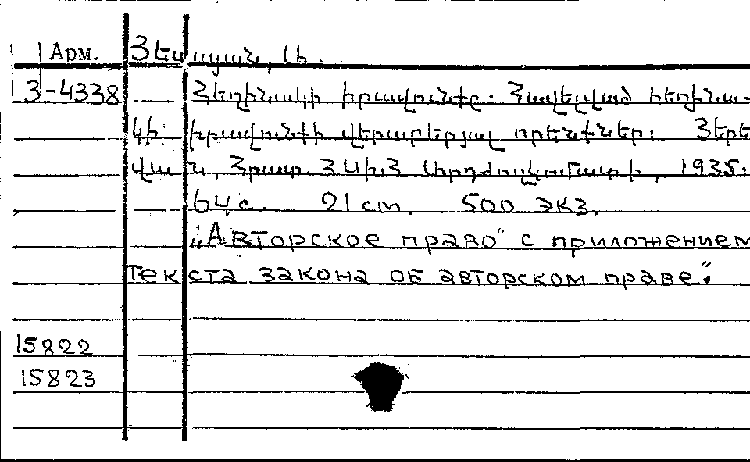 Арм. Յեսայան, Ս.
3-4338 Հեղինակի իրավունքը. Հավելված հեղինա-
կի իրավունքի վերաբերյալ որենքներ: Յերե
վան, Հրատ. ՀՍԽՀ Արդժողկոմատի, 1935:
64 с. 21 cm. 500 экз.
„Авторское право" с приложением
текста закона об авторском праве".
15822
15823